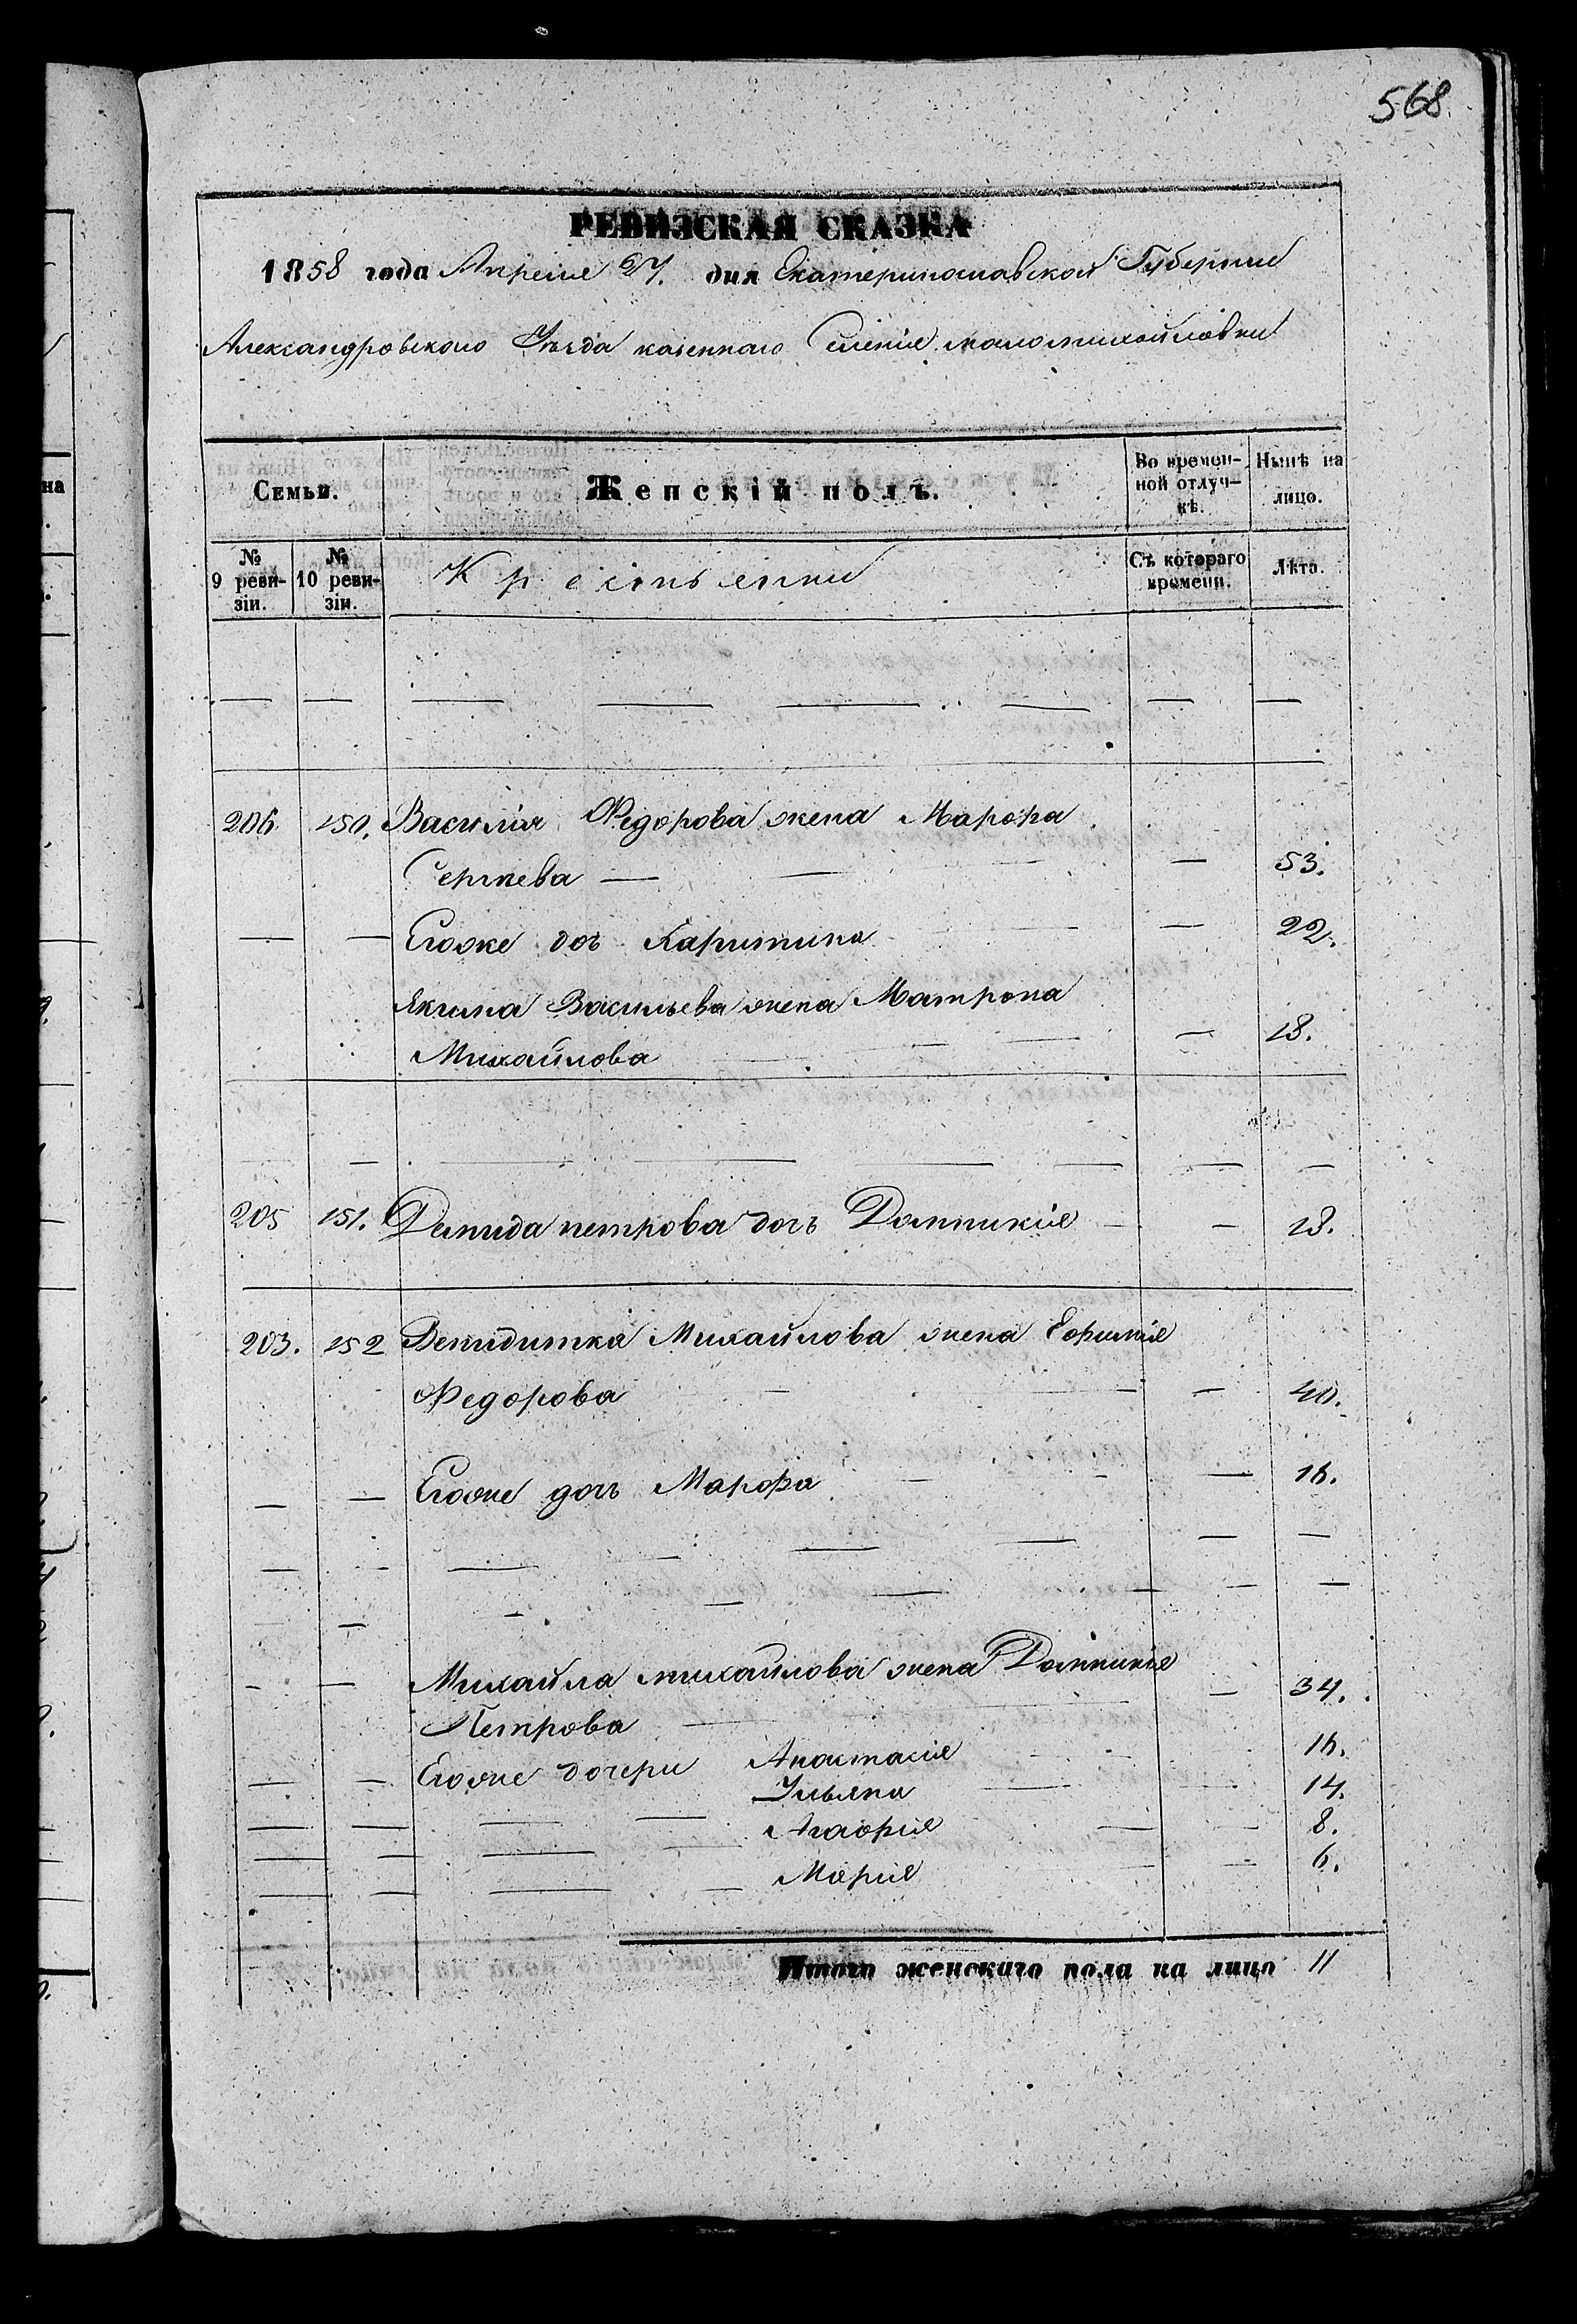 568.
РЕВИЗСКАЯ СКАЗКА
1858 года Апреля 27. дня Екатеринославской Губернии
Александровского Уезда казенного Селенія маломихайловки
Семьи. Женскій полъ. Во времен-ной отлуч-кѣ. Нынѣ на лицо.
№ 9 реви-зіи. № 10 реви-зіи. Крестьянки Съ котораго времени. Лѣта.
— — — — — — — —
206. 150. Василія Федорова жена Марфа
Сергѣева — — — 53.
— — Егоже доч Харитина — — 22.
Якима Васильева жена Матрона
Михайлова — — — — 18.
— — — — — — — —
205 151. Демида петрова дочъ Домникія — — 18.
203. 152 Демидитка Михайлова жена Ефимія
Федорова — — — 40.
— — Егоже дочъ Марфа — — — 16.
— — — — — — — —
— — — — — — —
— — Михайла михайлова жена Домникія
Петрова — — — 34.
— — Егоже дочери Анастасія — — 16.
— — — — Ульяна — — 14.
— — — — Агафія — — 8.
— — — — Марія — — 6.
Итого женскаго пола на лицо 11
на